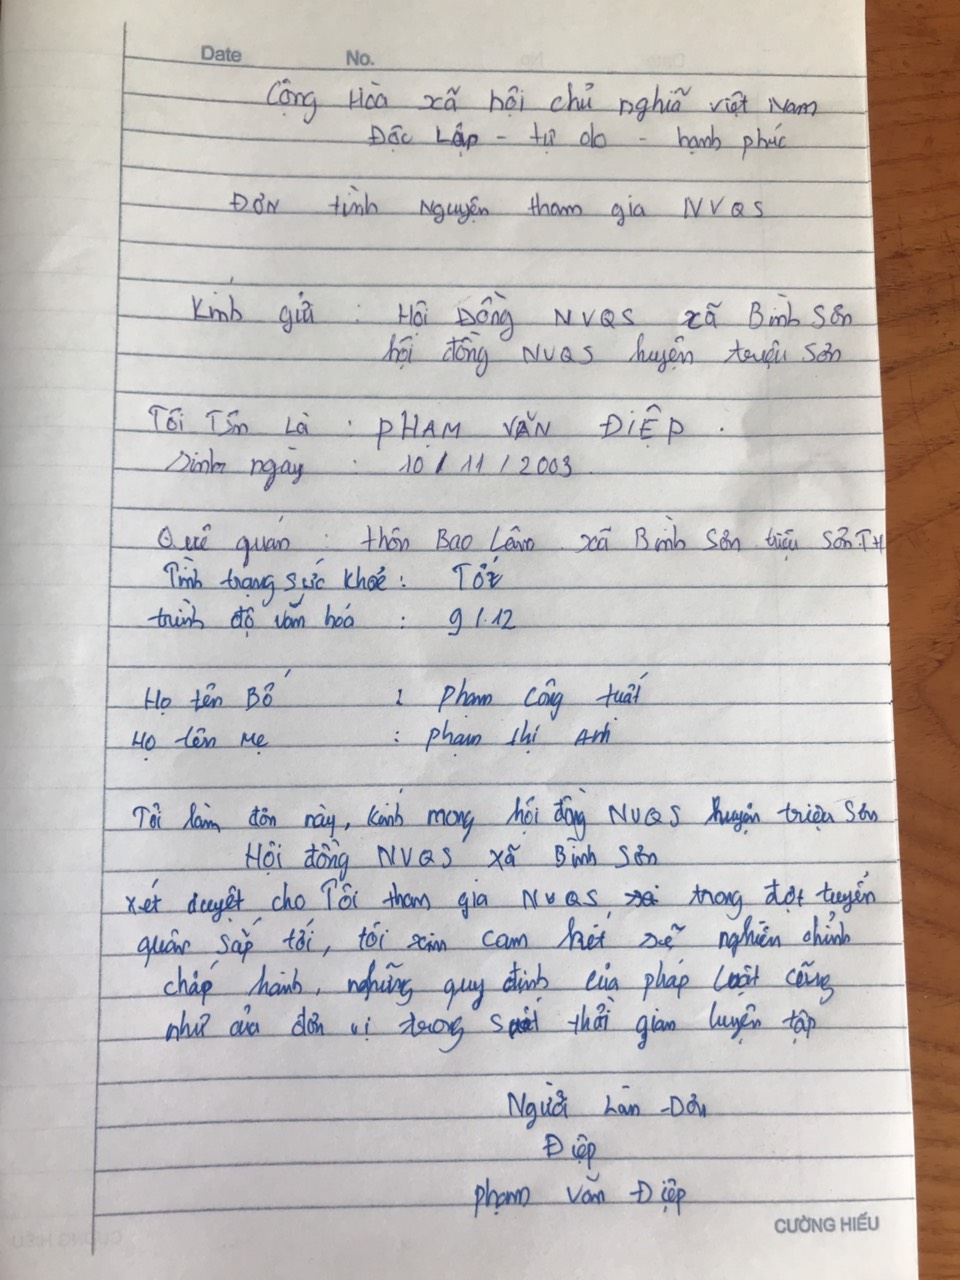 Date No.
Cộng Hòa xã hội chủ nghĩa việt Nam
Độc Lập - tự do - hạnh phúc
ĐƠN tình nguyện tham gia NVQS
Kính gửi : Hội Đồng NVQS xã Bình Sơn
hội đồng NVQS huyện triệu Sơn
Tôi Tên Là : PHẠM VĂN ĐIỆP .
Sinh ngày : 10 / 11 / 2003
Quê quán : thôn Bao Lâm xã Bình Sơn triệu Sơn TH
Tình trạng sức khoẻ : Tốt
trình độ văn hóa : 9 / 12
Họ tên Bố : phạm công tuất
Họ tên Mẹ : phạm thị Anh
Tôi làm đơn này, kính mong hội đồng NVQS huyện triệu Sơn
Hội đồng NVQS xã Bình Sơn
xét duyệt cho Tôi tham gia NVQS trong đợt tuyển
quân sắp tới, tôi xin cam kết sẽ nghiên chỉnh
chấp hành, những quy định của pháp Luật cũng
như của đơn vị trong suốt thời gian luyện tập
Người Làn Đơn
Điệp
phạm văn Điệp
CƯỜNG HIẾU